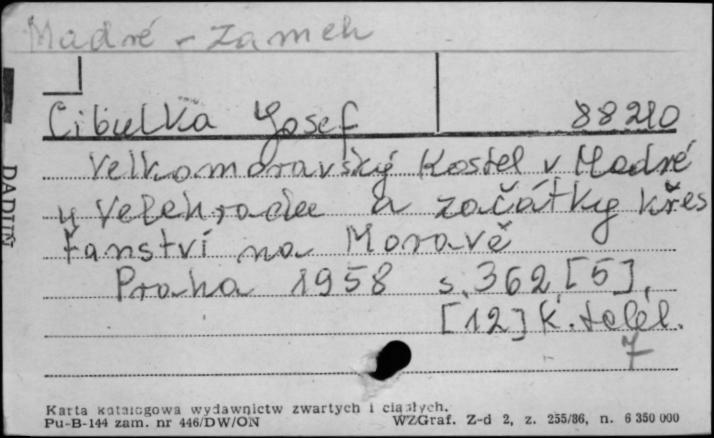 Madré - zamek
Cibulka Josef 88210
Velkomoravský Kostel v Madré
u Velehradu a začátky křes
ťanství na Moravě
Praha 1958 s. 362 [5],
[12] k. tabl.
7
DADUN
Karta katalogowa wydawnictw zwartych i ciągłych.
Pu-B-144 zam. nr 446/DW/ON WZGraf. Z-d 2, z. 255/86, n. 6 350 000